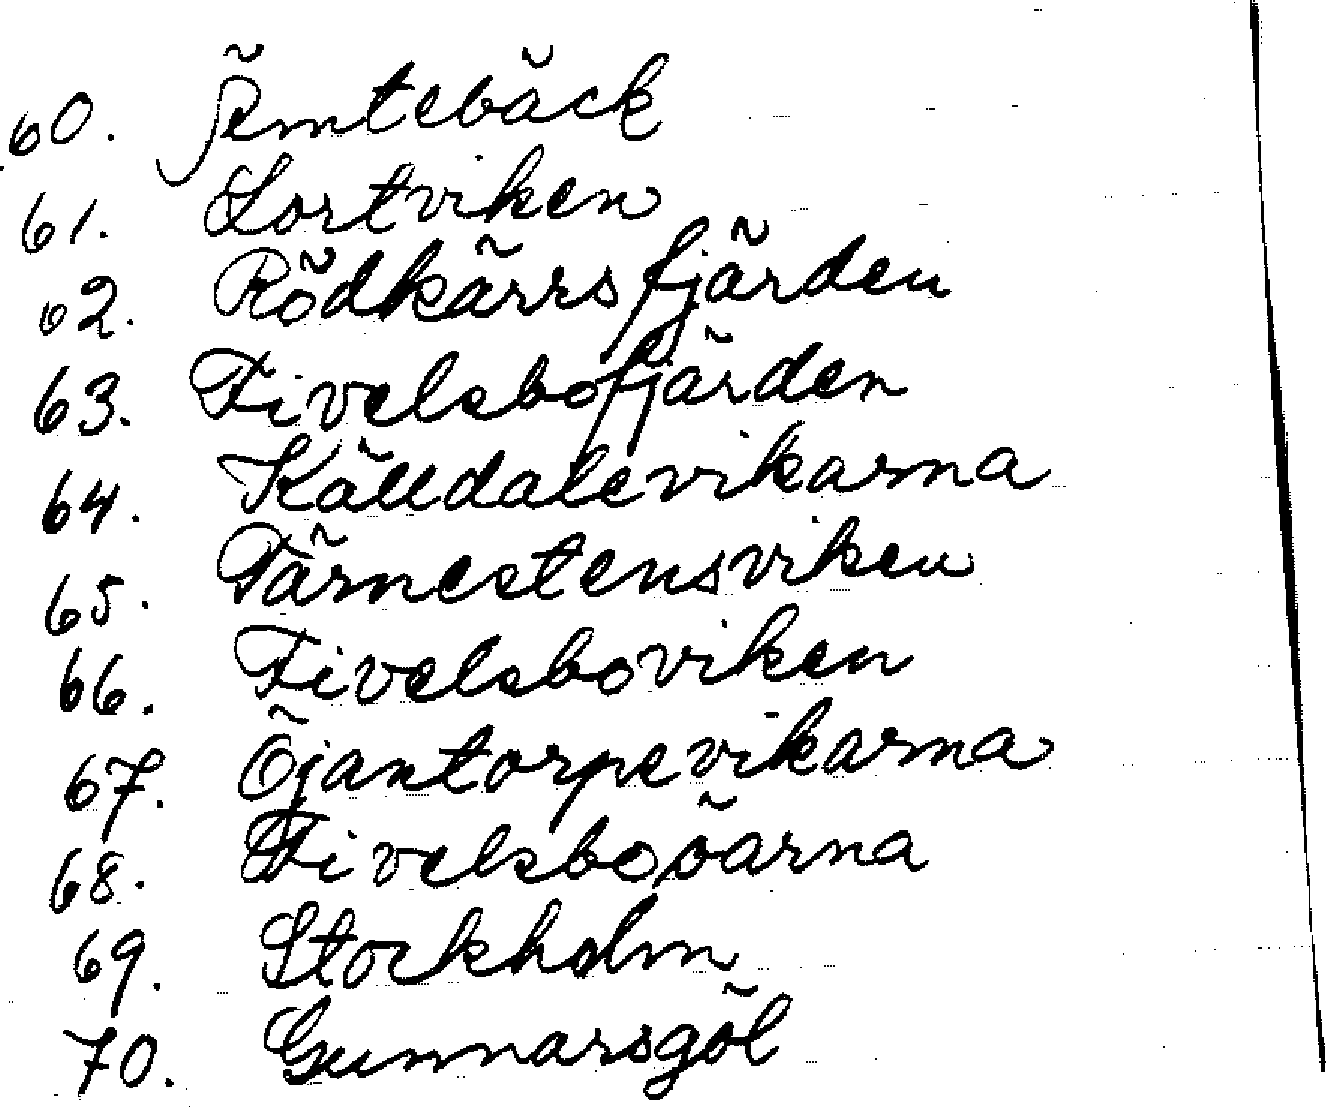 60. Jemtebäck
61. Lortviken
62. Rödkärrsfjärden
63. Fivelsbofjärden
64. Källdalevikarna
65. Tärnestensviken
66. Fivelsboviken
67. Öjantorpevikarna
68. Fivelsboöarna
69. Stockholm
70. Gunnarsgöl